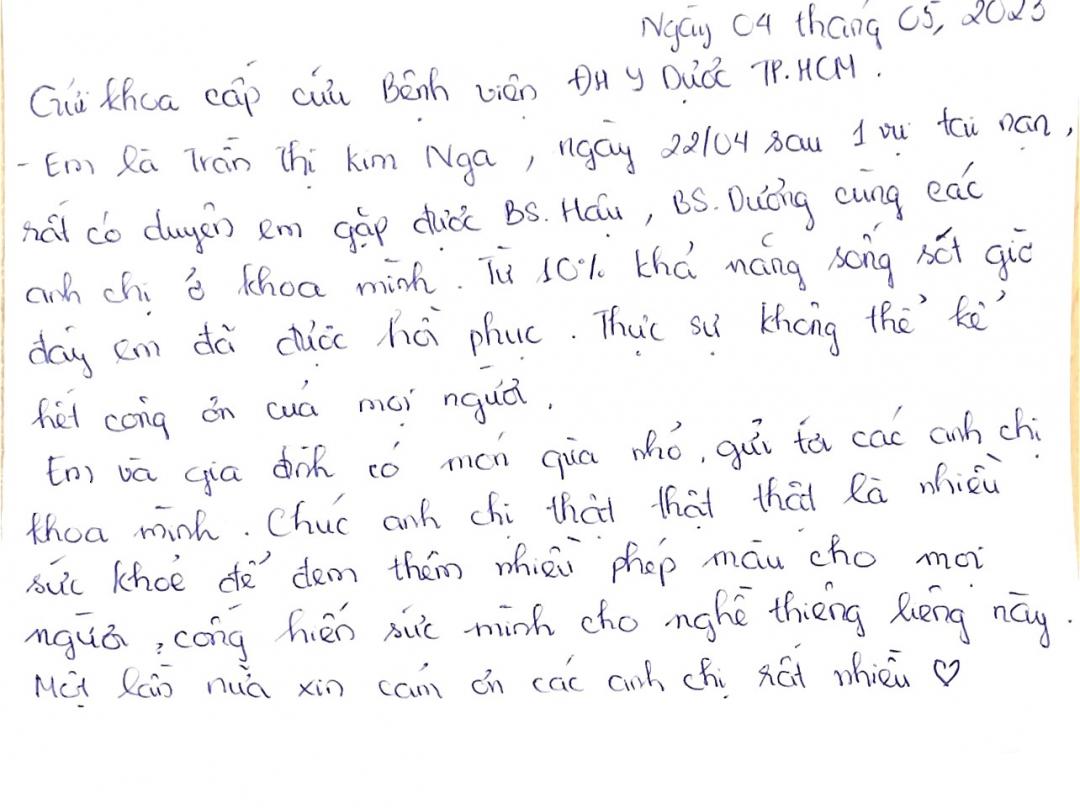 Ngày 04 tháng 05, 2023
Gửi khoa cấp cứu Bệnh viện ĐH Y Dược TP.HCM.
- Em là Trần Thị Kim Nga, ngày 22/04 sau 1 vụ tai nạn,
rất có duyên em gặp được BS. Hậu, BS. Dưỡng cùng các
anh chị ở khoa mình. Từ 10% khả năng sống sót giờ
đây em đã được hồi phục. Thực sự không thể kể
hết công ơn của mọi người.
Em và gia đình có món quà nhỏ, gửi tới các anh chị
khoa mình. Chúc anh chị thật thật thật là nhiều
sức khoẻ để đem thêm nhiều phép màu cho mọi
người, cống hiến sức mình cho nghề thiêng liêng này.
Một lần nữa xin cám ơn các anh chị rất nhiều ♡